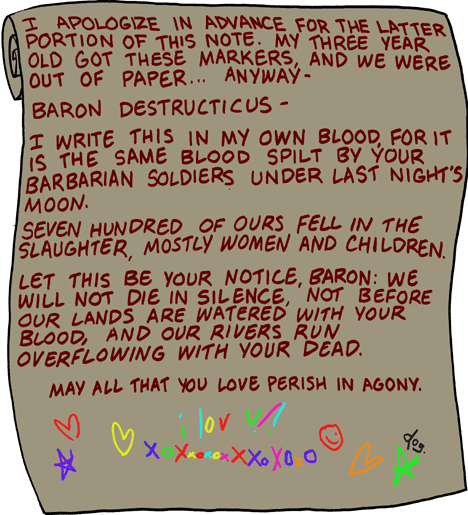 I APOLOGIZE IN ADVANCE FOR THE LATTER
PORTION OF THIS NOTE. MY THREE YEAR
OLD GOT THESE MARKERS, AND WE WERE
OUT OF PAPER... ANYWAY-
BARON DESTRUCTICUS-
I WRITE THIS IN MY OWN BLOOD, FOR IT
IS THE SAME BLOOD SPILT BY YOUR
BARBARIAN SOLDIERS UNDER LAST NIGHT'S
MOON.
SEVEN HUNDRED OF OURS FELL IN THE
SLAUGHTER, MOSTLY WOMEN AND CHILDREN.
LET THIS BE YOUR NOTICE, BARON: WE
WILL NOT DIE IN SILENCE, NOT BEFORE
OUR LANDS ARE WATERED WITH YOUR
BLOOD, AND OUR RIVERS RUN
OVERFLOWING WITH YOUR DEAD.
MAY ALL THAT YOU LOVE PERISH IN AGONY.
i lov U!!